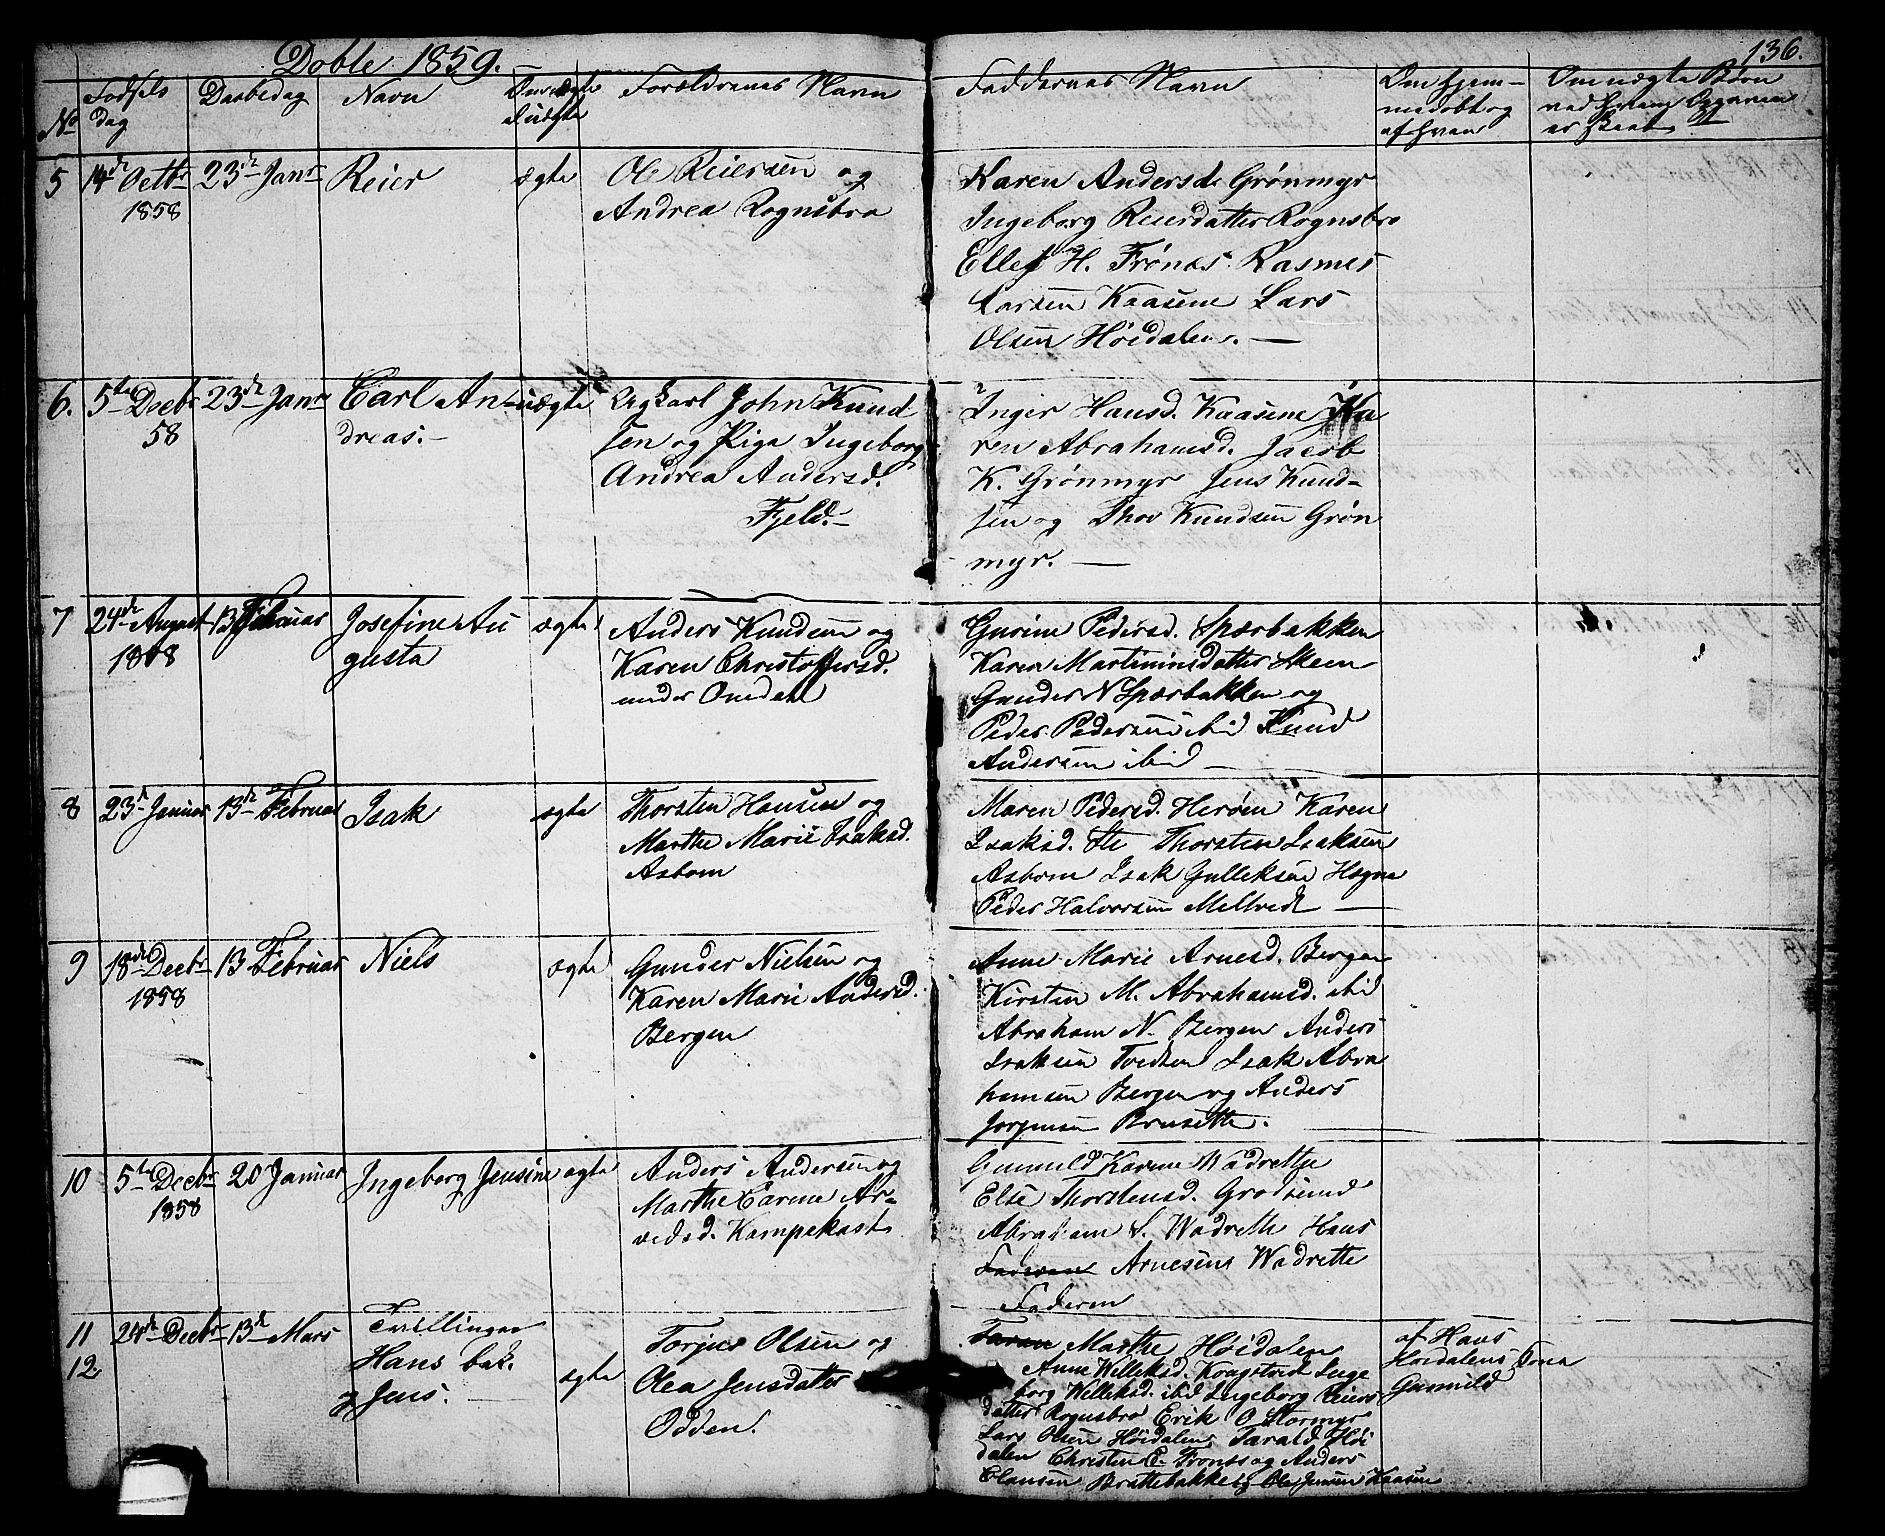 Døbte 1859.
136.
No
Fødsels
dag
Daabsdag
Navn
Forældrenes Navn
Faddernes Navn
Om hjem-
medøbt og
af hvem
Om uægte Børn
ved hvem Opgaven
er skeet
5 14de Octbr 23de Janr Reier ægte Ole Reiersen og
1858 Andrea Rognsbro
Karen Andersd. Grønmyr
Ingeborg Reiersdatter Rognsbro
Ellef H. Frønes Rasmus
Larsen Kaasene Lars
Olsen Høidalen. —
6. 5te Decbr 23de Janr Carl An- uægte Ugkarl John Knud
58 dreas. — sen og Pige Ingeborg
Andrea Andersd.
Fjeld. —
Inger Hansd. Kaasene Ka
ren Abrahamsd. Jacob
K. Grønmyr Jens Knud-
sen og Thov Knudsen Grøn
myr. —
7 24de August 13de Februar Josefine Au ægte Anders Knudsen og
1858 gusta Karen Christoffersd.
under Omdal
Gurine Pedersd. Spærbakken
Karen Martiniusdatter Skeen
Gunder N Spærbakken og
Peder Pedersen ibid Knud
Andersen ibid —
8 23de Januar 13de Februar Isak ægte Thorsten Hansen og
Marthe Marie Isaksd.
Asbom
Maren Pedersd. Herøen Karen
Isaksd. Thorsten Isaksen
Asbom Isak Gulleksen Hogne
Peder Halvorsen Meltved —
9 18de Decbr 13 Februar Niels ægte Gunder Nielsen og
1858 Karen Marie Andersd.
Bergen
Anne Marie Arnesd. Bergen
Kirsten M. Abrahamsd. ibid
Abraham N. Bergen Anders
Isaksen Tvedten Isak Abra
hamsen Bergen og Anders
Jørgensen Brusette.
10 5te Decbr 20 Januar Ingeborg Jensine ægte Anders Andersen og
1858 Marthe Karine Ar-
vedsd. Kampekast
Gunuld Karine Wadrette
Else Thorstensd. Grodsund
Abraham S. Wadrette Hans
Faderen Arnesens Wadrette
Faderen
11 24de Decbr 13de Mars Tvillinger
12. Hans bak.
og Jens. ægte
Torjus Olsen og
Olea Jensdatter
Odden.
Marthe Høidalen
Anne Willeksd. Krogstved Inge
borg Willeksd. ibid Ingeborg Reiers
datter Rognsbro Erik O Stormyr
Lars Olsen Høidalen Tarald Høi
dalen Christen C. Frønes og Anders
Clausen Brattebakke og Ole Jensen Kaasen
af Hans
Høidalens Kona
Gunnild